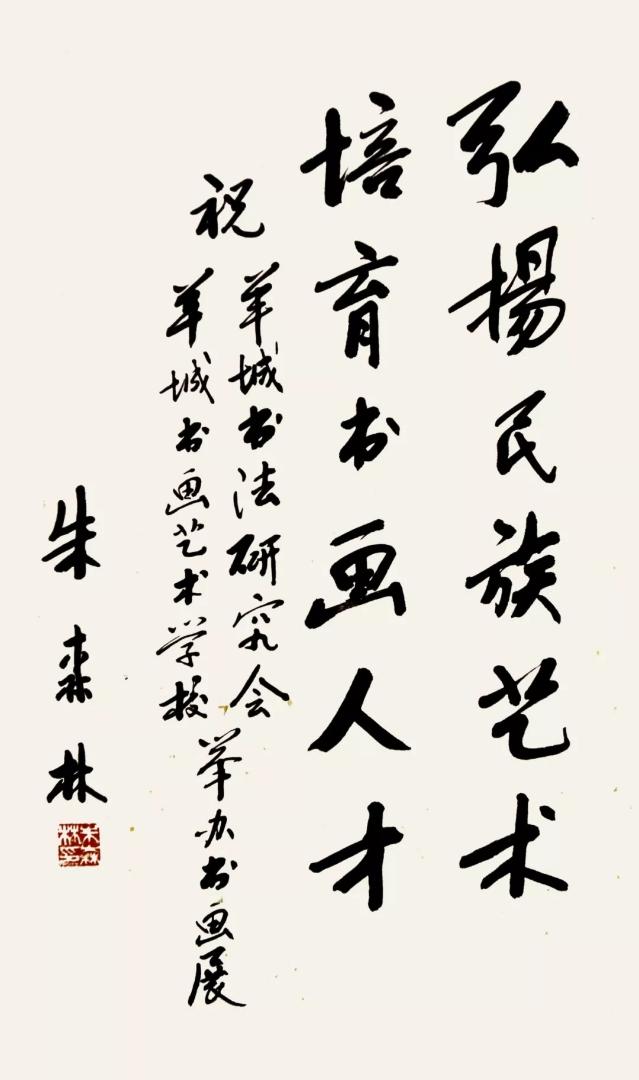 弘揚民族艺术
培育书画人才
祝
羊城书法研究会
羊城书画艺术学校
举办书画展
朱森林
朱森林印